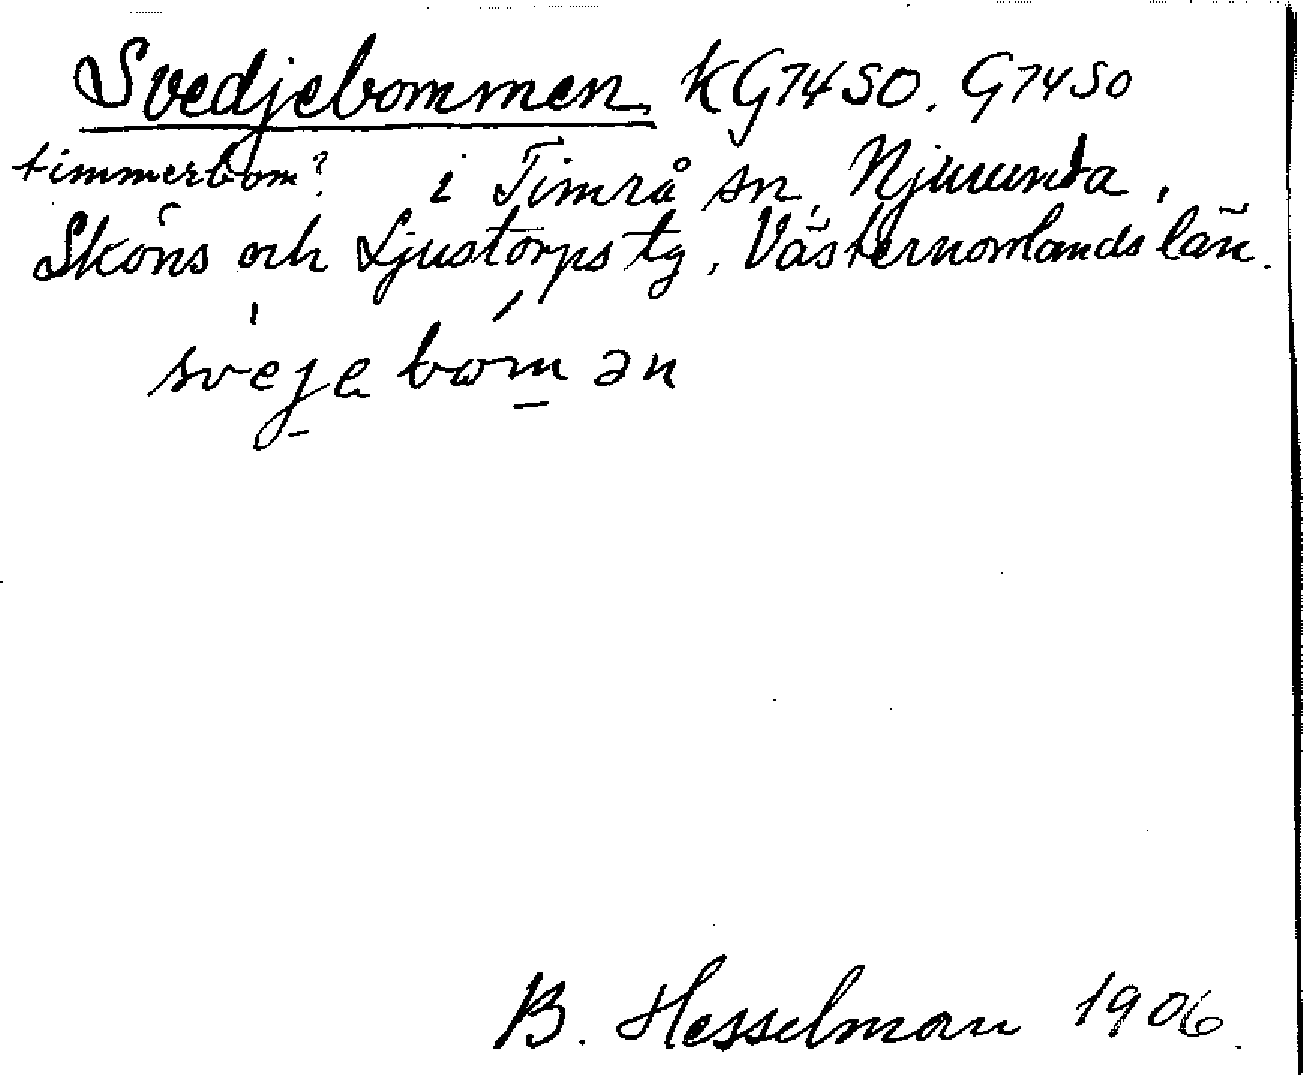 Svedjebommen KG7450. G7450
timmerbom? i Timrå sn, Njurunda,
Sköns och Ljustorps tg, Västernorrlands län.
sveje bom ən
B. Hesselman 1906.